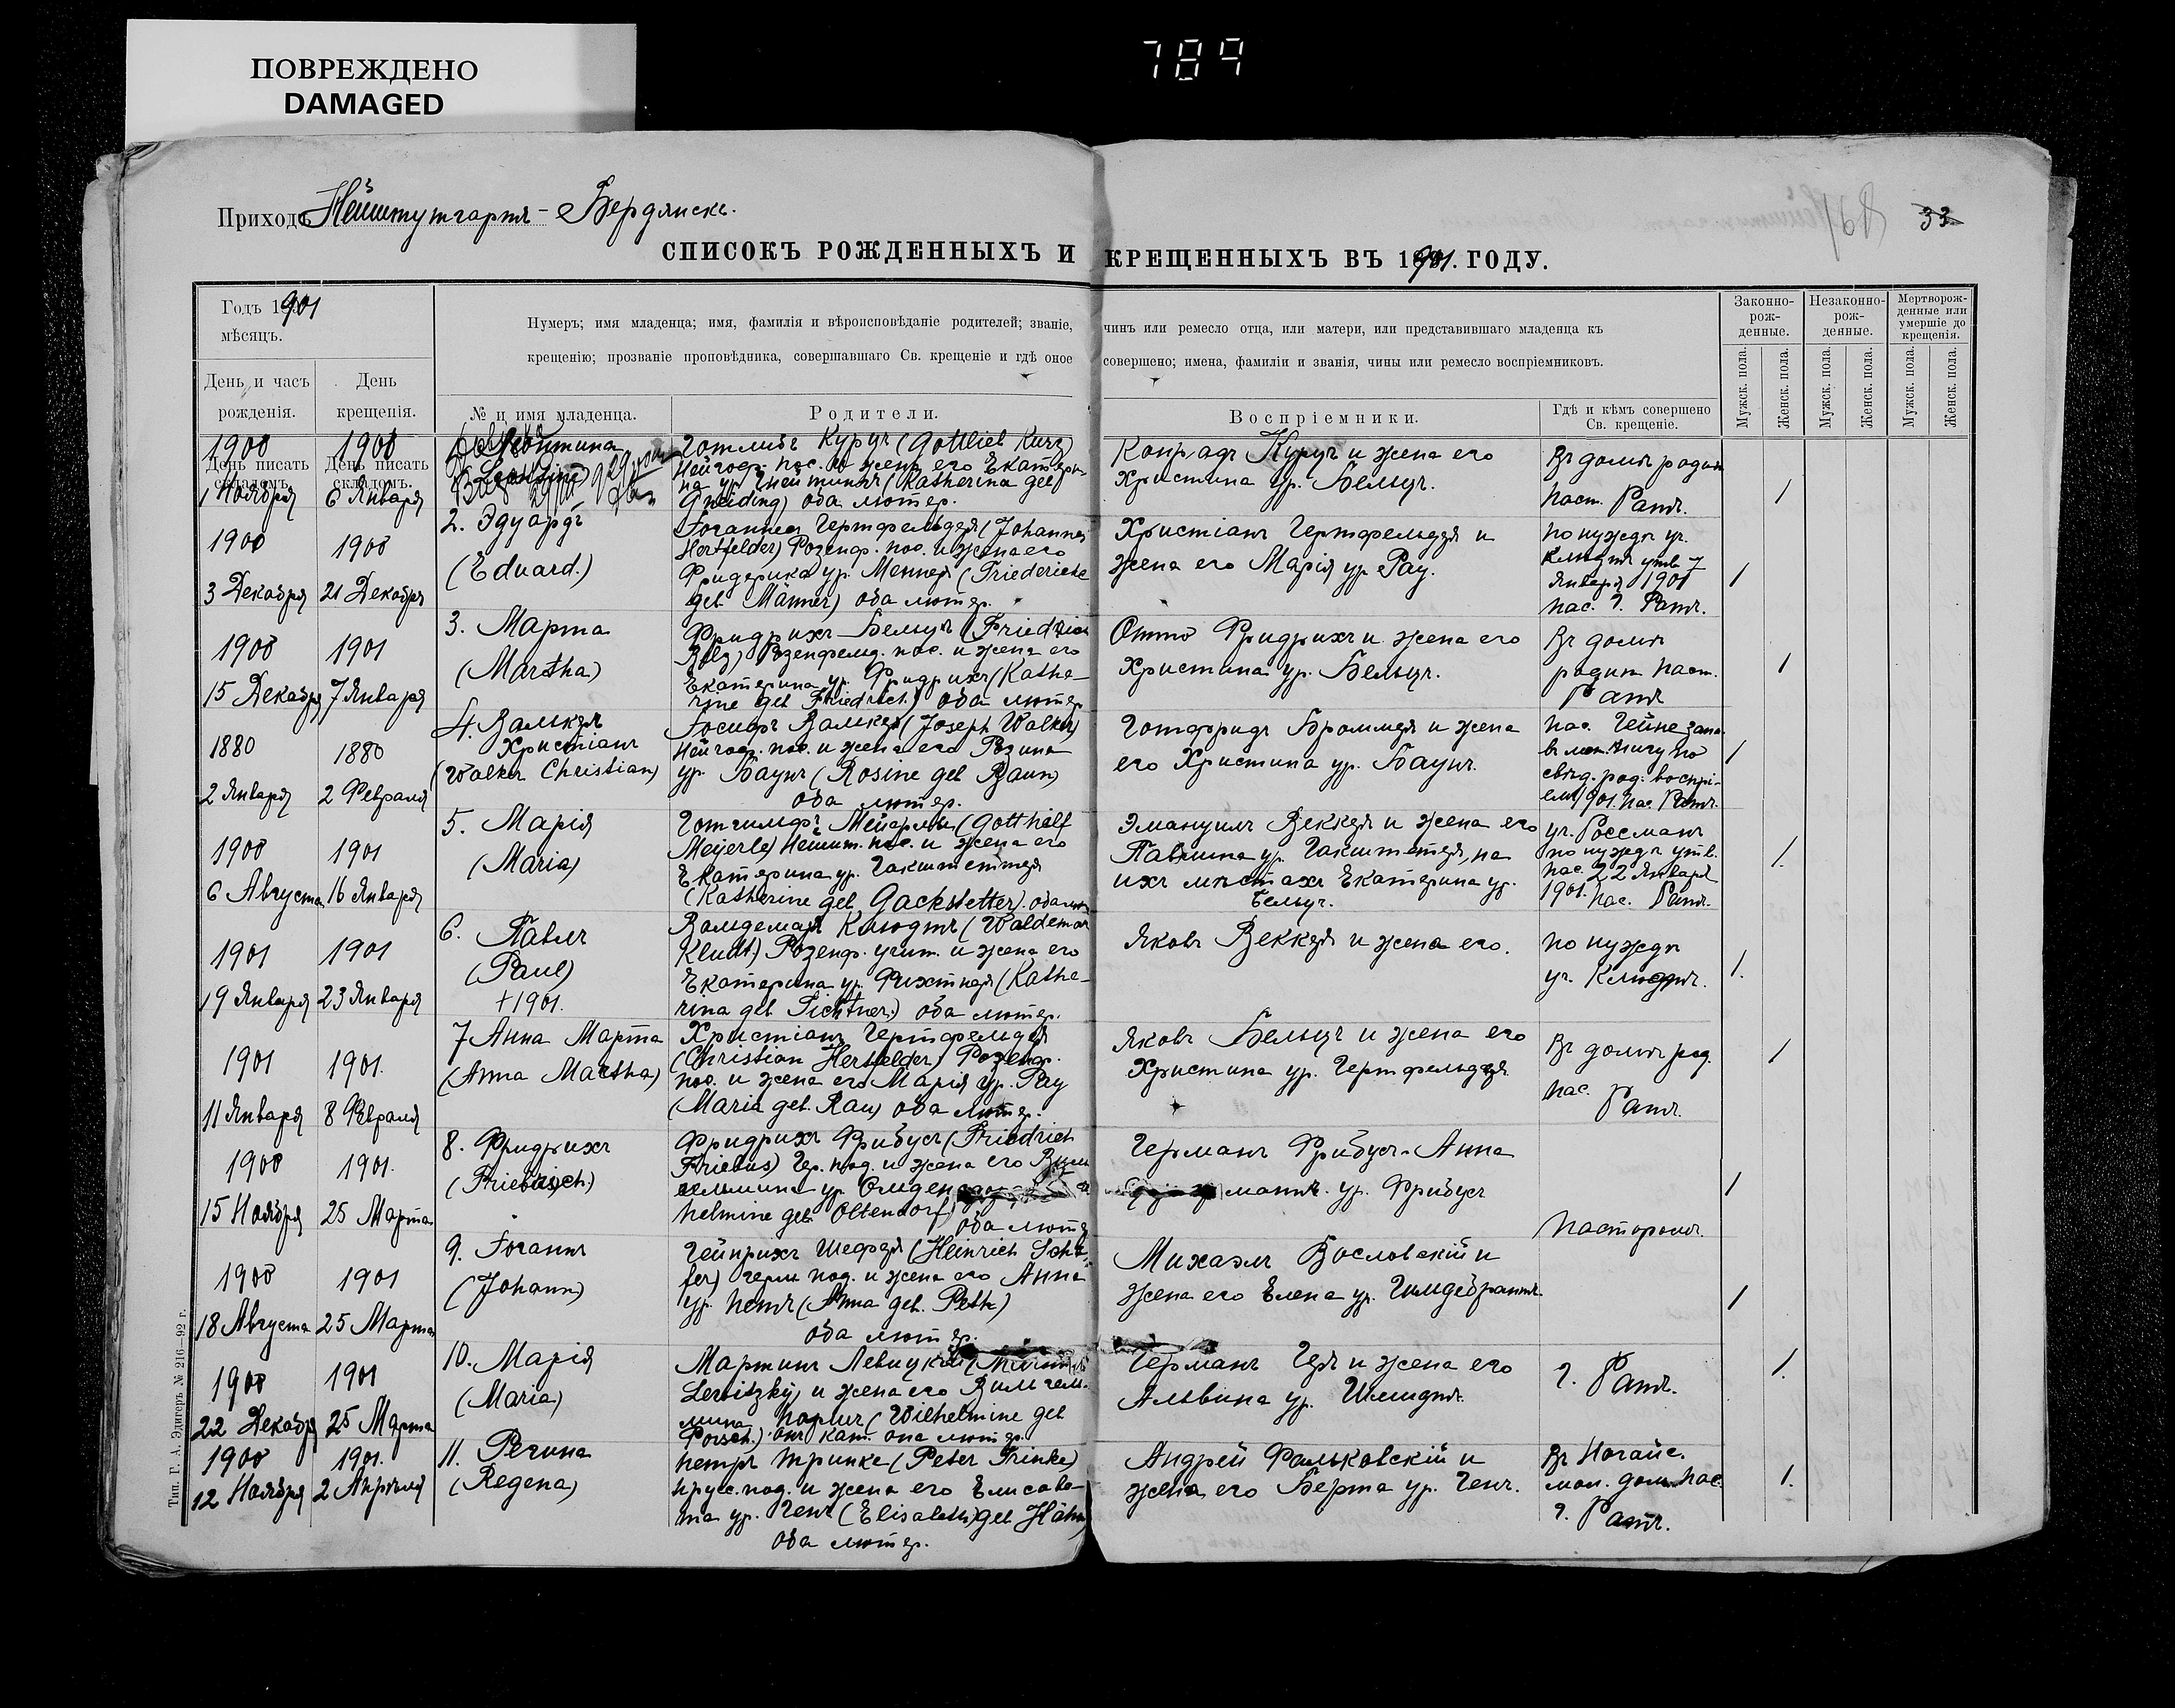 ПОВРЕЖДЕНО
DAMAGED
789
Приходъ Нейштутгартъ - Бердянскъ.
33
СПИСОКЪ РОЖДЕННЫХЪ И КРЕЩЕННЫХЪ ВЪ 1901. ГОДУ.
Годъ 1901
мѣсяцъ.
Нумеръ; имя младенца; имя, фамилія и вѣроисповѣданіе родителей; званіе, чинъ или ремесло отца, или матери, или представившаго младенца къ
крещенію; прозваніе проповѣдника, совершавшаго Св. крещеніе и гдѣ оное совершено; имена, фамиліи и званія, чины или ремесло воспріемниковъ.
Законно-
рож-
денные.
Незаконно-
рож-
денные.
Мертворож-
денные или
умершіе до
крещенія.
Мужск. пола.
Женск. пола.
Мужск. пола.
Женск. пола.
Мужск. пола.
Женск. пола.
День и часъ
рожденія.
День
крещенія.
№ и имя младенца.
Родители.
Воспріемники.
Гдѣ и кѣмъ совершено
Св. крещеніе.
1900
День писать
складомъ.
1 Ноября
1900
День писать
складомъ.
6 Января
Готлибъ Курцъ (Gottlieb Kurz)
Нейгоф. пос. и жена его Екатери-
на ур. (Katherina geb
Gneiding) оба лютер.
Конрадъ Курцъ и жена его
Христина ур. Бельцъ.
Въ домѣ родит
паст. Ратъ.
1
1900
3 Декабря
1900
21 Декабря
2. Эдуардъ
(Eduard.)
Іоганнесъ Гертфельдеръ (Johannes
Hertfelder) Розенф. пос. и жена его
Фридерика ур. Меннеръ (Friederieke
geb. Männer) оба лютер.
Христіанъ Гертфельдеръ и
жена его Марія ур. Рау.
По нуждѣ уч.
Клюдтъ утв. 7
Января 1901
пас. Г. Ратъ.
1
1900
15 Декабря
1901
7 Января
3. Марта
(Martha)
Фридрихъ Бельцъ (Friedrich
Belz) Розенфелд. пос. и жена его
Екатерина ур. Фридрихъ (Kathe-
rine geb Friedrich) оба лютер
Отто Фридрихъ и жена его
Христина ур. Бельцъ.
Въ домѣ
родит паст.
Ратъ
1
1880
2 Января
1880
2 Февраля
4. Валькеръ
Христіанъ
(Walker Christian)
Іосифъ Валкеръ (Joseph Walker)
Нейгоф. пос. и жена его Розина
ур. Баунъ (Rosine geb Baun)
оба лютер.
Готфридъ Броммеръ и жена
его Христина ур. Баунъ.
Пас. Гейне зане.
въ мет. книгу по
свѣд. род. воспрі-
ем. 1901. пас. Ратъ.
1
1900
6 Августа
1901
16 Января
5. Марія
(Maria)
Готгильфъ Мейерле (Gotthilf
Meyerle) Нейшт. пос. и жена его
Екатерина ур. Гакштеттеръ
(Katherine geb Gackstetter). оба лют
Эмануилъ Веккеръ и жена его
Павлина ур. Гакштетеръ, на
ихъ мѣстахъ Екатерина ур.
Бельцъ.
уч. Россманъ
по нуждѣ утв.
пас. 22 Января
1901. пас. Ратъ.
1.
1901
19 Января
1901
23 Января
6. Павлъ
(Paul)
+ 1901.
Волдемаръ Клюдтъ (Waldemar
Kludt) Розенф. учит. и жена его
Екатерина ур. Фихтнеръ (Kathe-
rina geb Fichtner) оба лютер.
Яковъ Веккеръ и жена его.
По нуждѣ
уч. Клюдтъ.
1.
1901
11 Января
1901.
8 Февраля
7 Анна Марта
(Anna Martha)
Христіанъ Гертфельдеръ
(Christian Hertfelder) Розенф.
пос. и жена его Марія ур. Рау
(Maria geb. Rau) оба лютер.
Яковъ Бельцъ и жена его
Христина ур. Гертфельдеръ.
Въ домѣ род.
пас.
Ратъ.
1
1900
15 Ноября
1901.
25 Марта
8. Фридрихъ
(Friedrich.)
Фридрихъ Фрибусъ (Friedrich
Friebus) Гер. под. и жена его Вил
helmine geb Oltendorf)
оба лютер
Германъ Фрибусъ. Анна
ур. Фрибусъ
1
Пасторомъ.
1900
18 Августа
1901
25 Марта
9. Іоганнъ
(Johann)
Гейнрихъ Шеферъ (Heinrich Schä-
fer) герм под. и жена его Анна
ур. Петъ (Anna geb. Peth)
оба лютер.
Михаэлъ Вословскій и
жена его Елена ур. Гилдебрантъ.
1
1900
22 Декабря
1901
25 Марта
10. Марія
(Maria)
Мартинъ Левицкій (Martin
Lewitzky) и жена его Вилгель-
мина Поршъ (Wilhelmine geb
Porsch.) онъ кат. она лютер.
Германъ Геръ и жена его
Альвина ур. Шмидтъ.
Г. Ратъ.
1.
1900
12 Ноября
1901.
2 Апрѣля
11. Регина
(Regena)
Петръ Тринке (Peter Trinke)
прусс. под. и жена его Елисаве-
та ур. Генъ (Elisabeth) geb Hähn)
оба лютер.
Андрей Фальковскій и
жена его Берта ур. Генъ.
Въ Ногайс.
мол. домѣ пас.
Г. Ратъ.
1.
Тип. Г. А. Эдигеръ № 216—92 г.